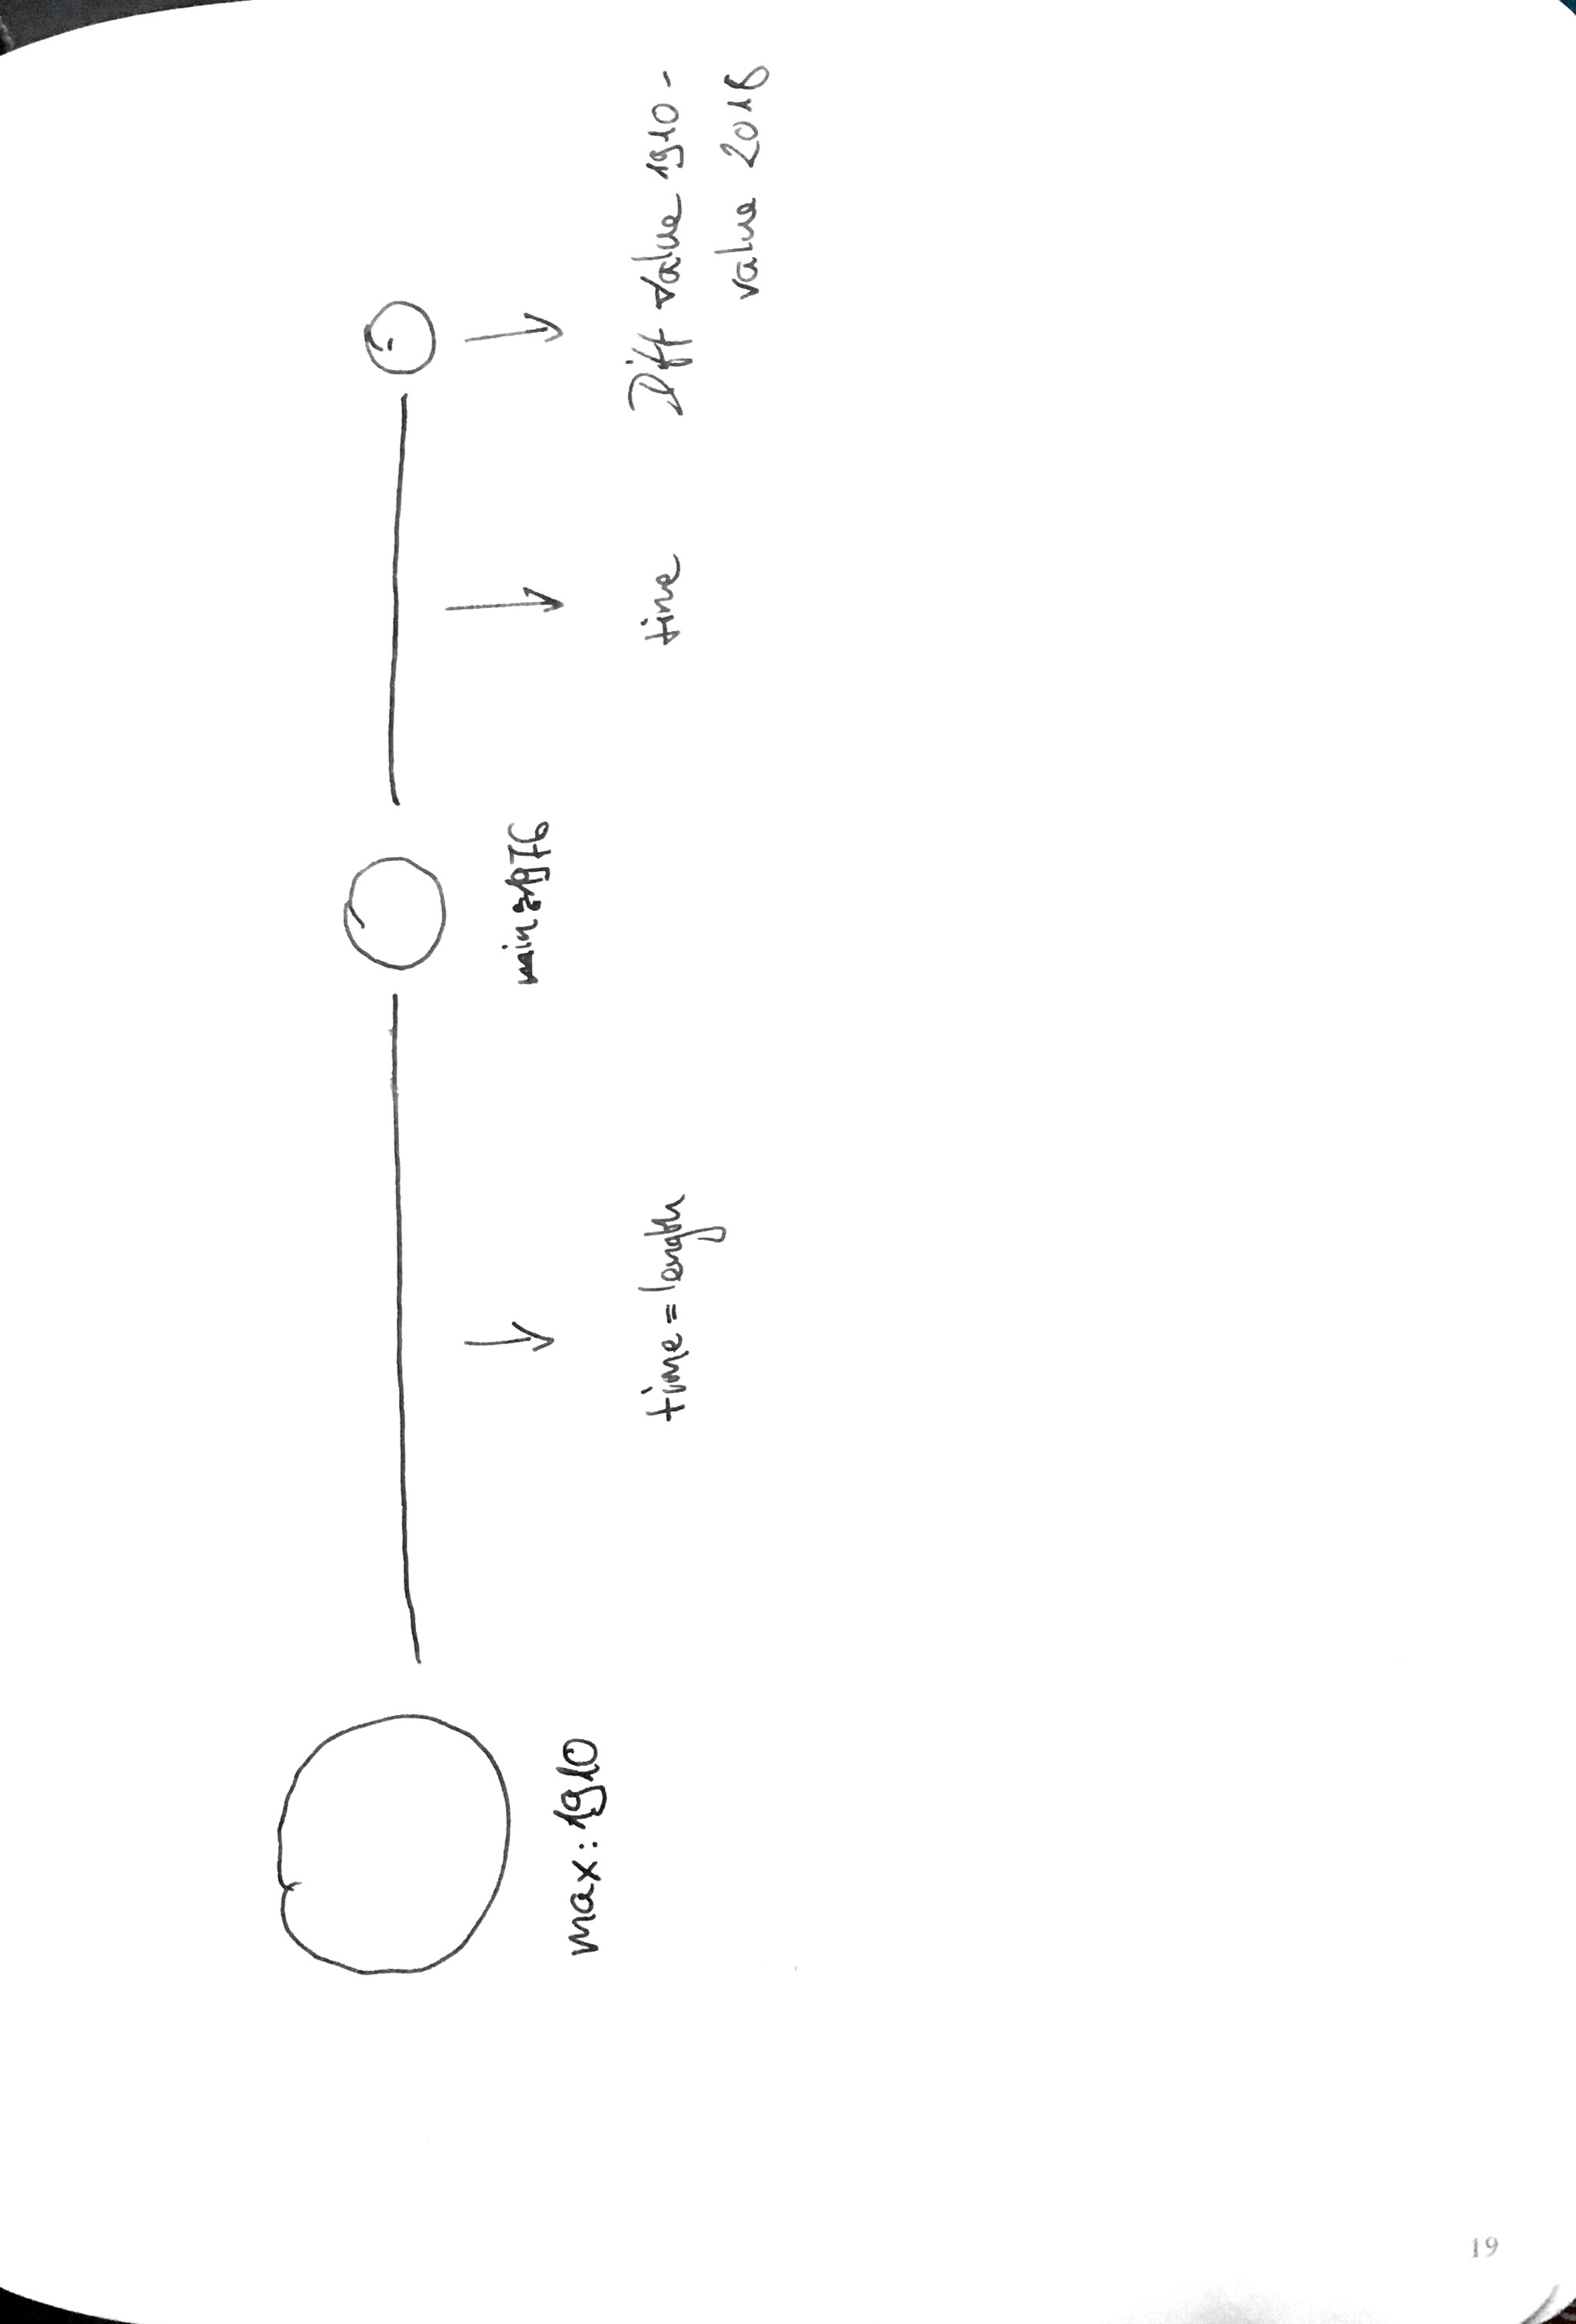 max: 1910
time = length
min 1976
time
Diff value 1910 -
value 2016
19